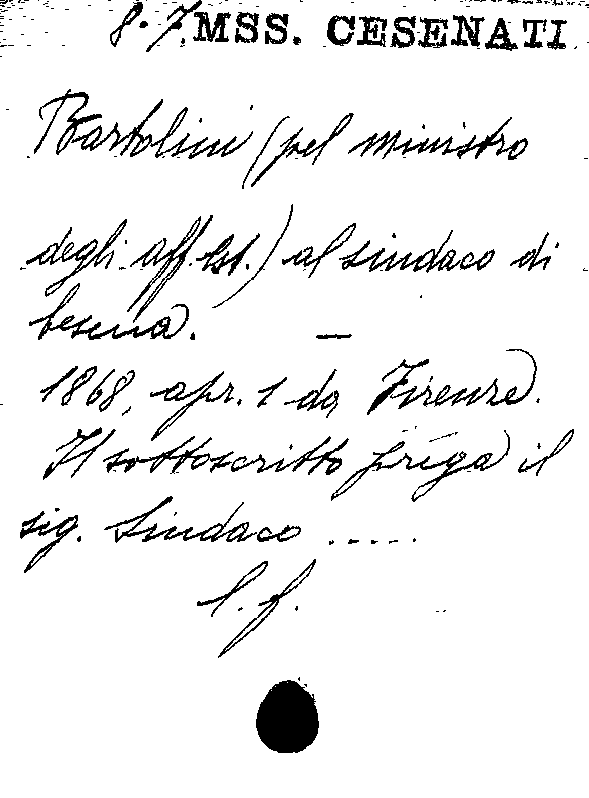 8.7. MSS. CESENATI
Bartolini (pel ministro
degli aff. Est.) al sindaco di
Cesena. —
1868, apr. 1 da Firenze.
Il sottoscritto prega il
sig. Sindaco .....
l. f.